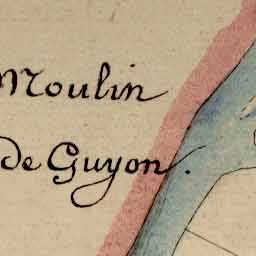 Moulin
de Guyon.